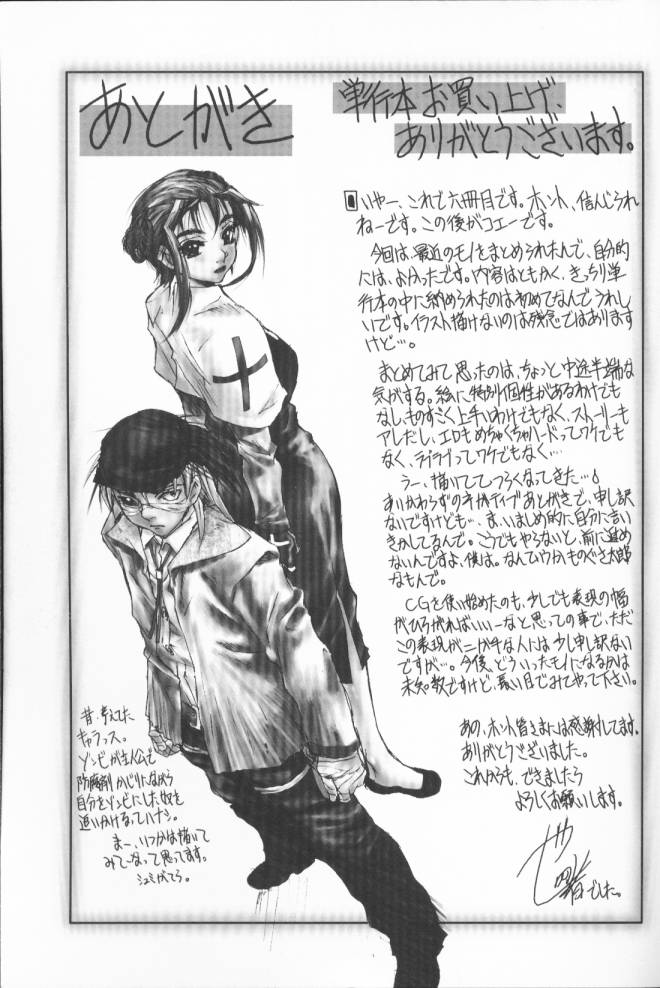 あとがき
単行本お買い上げ、
ありがとうございます。
いやー、これで六冊目です。ホント、信じられ
ねーです。この後がコエーです。
今回は、最近のモノをまとめられたんで、自分的
には、よかったです。内容はともかく、きっちり単
行本の中に納められたのは初めてなんでうれし
いです。イラスト描けないのは残念ではあります
けど…。
まとめてみて思ったのは、ちょっと中途半端な
気がする。絵に特別個性があるわけでも
なし、ものすごく上手いわけでもなく、ストーリーも
アレだし、エロもめちゃくちゃハードってワケでも
なく、ラブラブってワケでもなく…
うー、描いててつらくなってきた…。
あいかわらずのネガティブあとがきで、申し訳
ないですけども…ま、いましめ的に自分に言い
きかしてるんで。こうでもやらないと、前に進め
ないんですよ、僕は。なんていうかものぐさ太郎
なもんで。
CGを使い始めたのも、少しでも表現の幅
がひろがればいいなーと思っての事で、ただ
この表現がニガ手な人には少し申し訳ない
ですが…。今後、どういったモノになるかは
未知数ですけど、長い目でみてやって下さい。
あの、ホント皆さまには感謝してます。
ありがとうございました。
これからも、できましたら
よろしくお願いします。
でした。
昔、考えてた
キャラっス。
ゾンビが主人公で
防腐剤かじりながら
自分をゾンビにした奴を
追いかけるっていう。
まー、いつかは描いて
みてーなって思ってます。
シュミがてら。